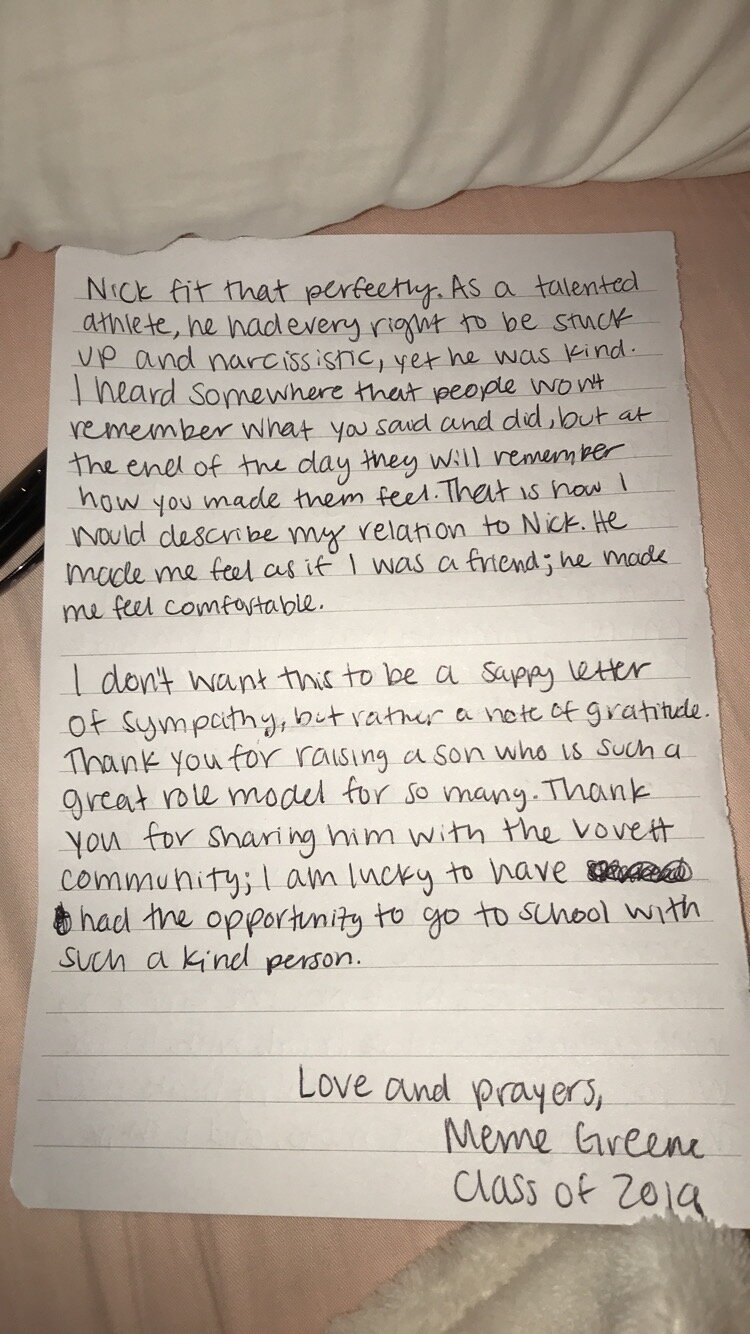 Nick fit that perfectly. As a talented
athlete, he had every right to be stuck
up and narcissistic, yet he was kind.
I heard somewhere that people wont
remember what you said and did, but at
the end of the day they will remember
how you made them feel. That is how I
would describe my relation to Nick. He
made me feel as if I was a friend; he made
me feel comfortable.
I don't want this to be a sappy letter
of sympathy, but rather a note of gratitude.
Thank you for raising a son who is such a
great role model for so many. Thank
you for sharing him with the Lovett
community; I am lucky to have
had the opportunity to go to school with
such a kind person.
Love and prayers,
Meme Greene
Class of 2019